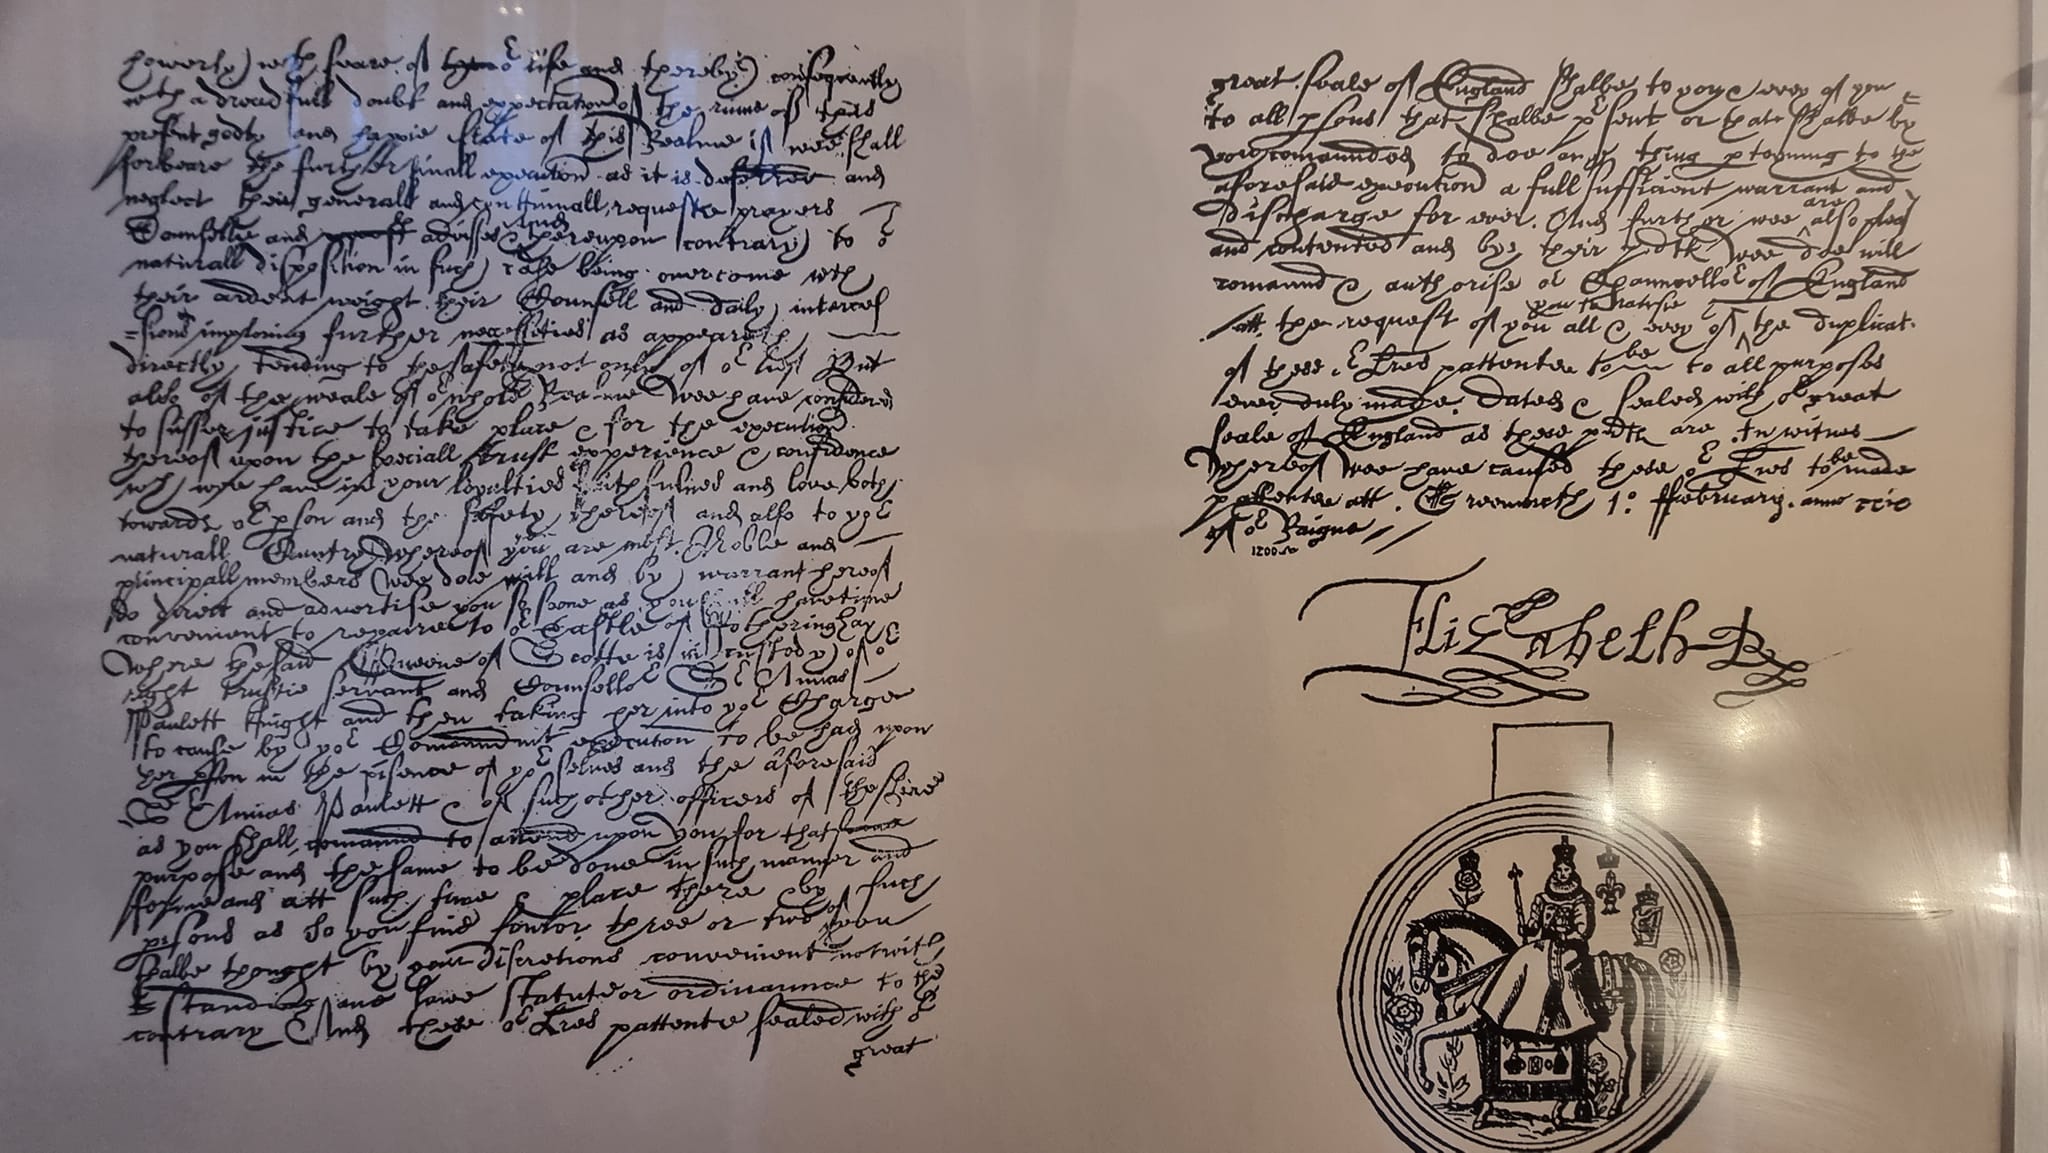 howerly) with feare of life and thereby) consequently
with a dreadfull doubt and expectation of the ruine of thus
present godly and happie state of this Realme if wee shall
forbeare the further finall execution as it is deferred and
neglect their generall and conttinuall requeste prayers
Counselle and advises And thereupon contrary) to oe
naturall disposition in such case being overcome wth
their ardent weight their Counsell and daily intercef
=sions imploring further necessities as appeareth
directly tending to the safety not only of oe But
also of the weale of oe whole Realme Wee have considered
to suffer justice to take place & for the execution
thereof upon the speciall trust experience & confidence
wch wee have in your loyalties faithfulnes and love both
towards oe pson and the safety thereof and also to yoe
naturall Cuntre whereof you are most Noble and
principall members wee doe will and by) warrant hereof
do direct and advertise you so soone as you have time
convenient to repaire to oe Castle of Fotheringhay
where the said Queene of Scotte is in custody) of oe
right trustie servant and Counselloe Sr Amias
Paulett knight and then taking her into yoe Charge
to cause by yoe Comanndmt execution to be had upon
her pson in the psence of yoe selves and the aforesaid
Sr Amias Paulett & of such other officers of the shire
as you shall comannd to attend upon you for that
purpose and the same to be done in such manner and
forme and att such time & place there by such
psons as to you five fower three or two of you
shalbe thought by your discretions convenient notwith
standing anie lawe statute or ordinannce to the
contrary And these oe Lres pattente sealed with oe
great
great seale of England shalbe to you & every of you
to all psons that shalbe psent or that shalbe by
you comannded to doe any thing ptaining to the
aforesaid execution a full sufficient warrant and
discharge for ever. And further wee are also pleased
and contented and by their wee doe will
comannd & authorise oe Channcelloe of England
att the request of you all & every of you to the duplicat
of these oe Lres pattente to be to all purposes
ever duly made Dated & sealed with oe great
seale of England as these psents are In witnes
whereof Wee have caused these oe Lres to be made
pattente att Greenwich 1o ffebruary anno
of oe Raigne
1200
Elizabeth R